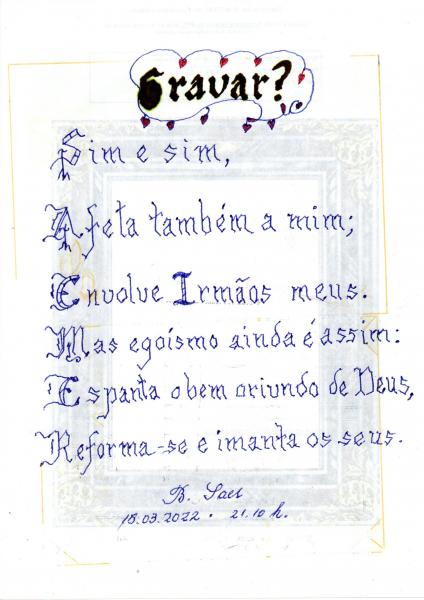 Gravar?
Sim e sim,
Afeta também a mim;
Envolve Irmãos meus.
Mas egoísmo ainda é assim:
Espanta o bem oriundo de Deus,
Reforma-se e imanta os seus.
B. Saet
18.03.2022 . 21.10 h.